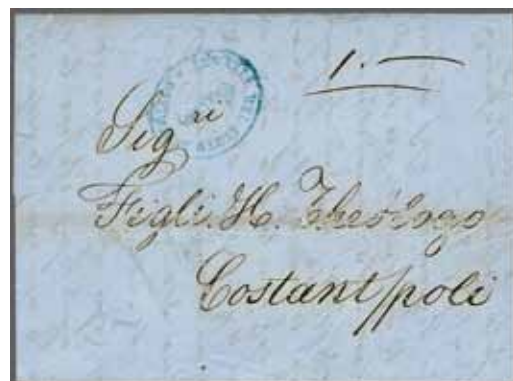 1.—
Sig ri
Figli. H. Theologo
Costantpoli